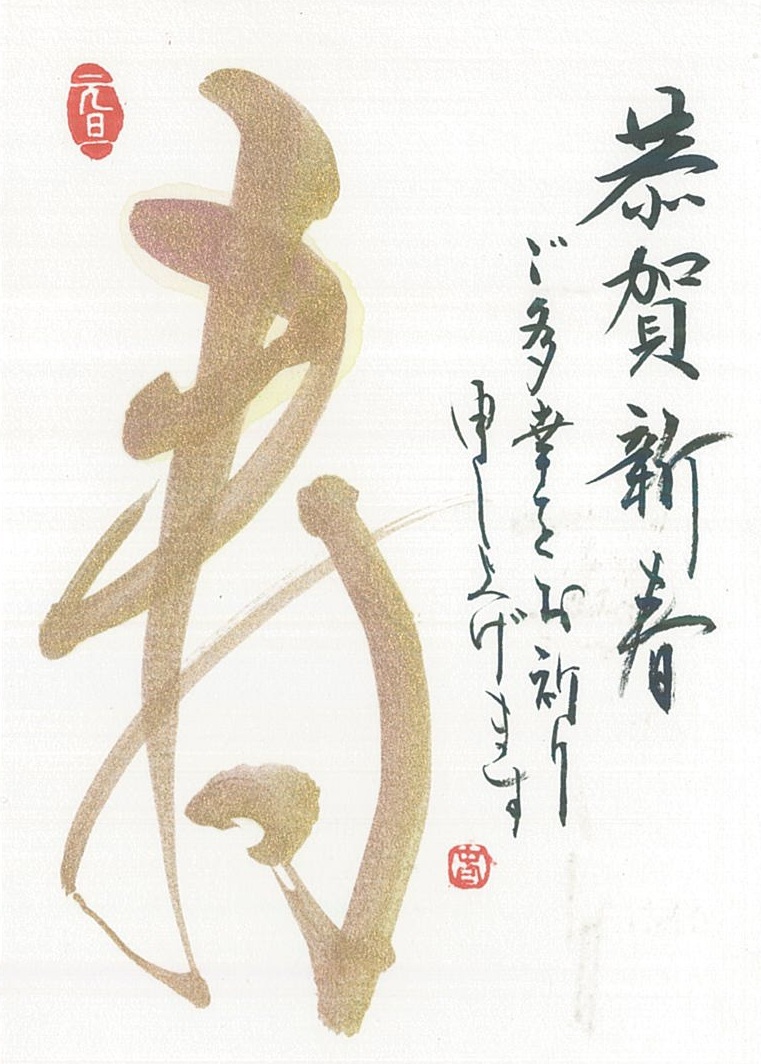 恭賀新春
ご多幸をお祈り
申し上げます
寿
元旦